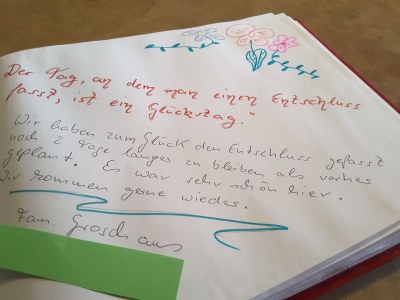 Der Tag, an dem man einen Entschluss
fasst, ist ein Glückstag."
Wir haben zum Glück den Entschluss gefasst
noch 2 Tage länger zu bleiben als vorher
geplant. Es war sehr schön hier.
Wir kommen gerne wieder.
Fam. Grosch aus